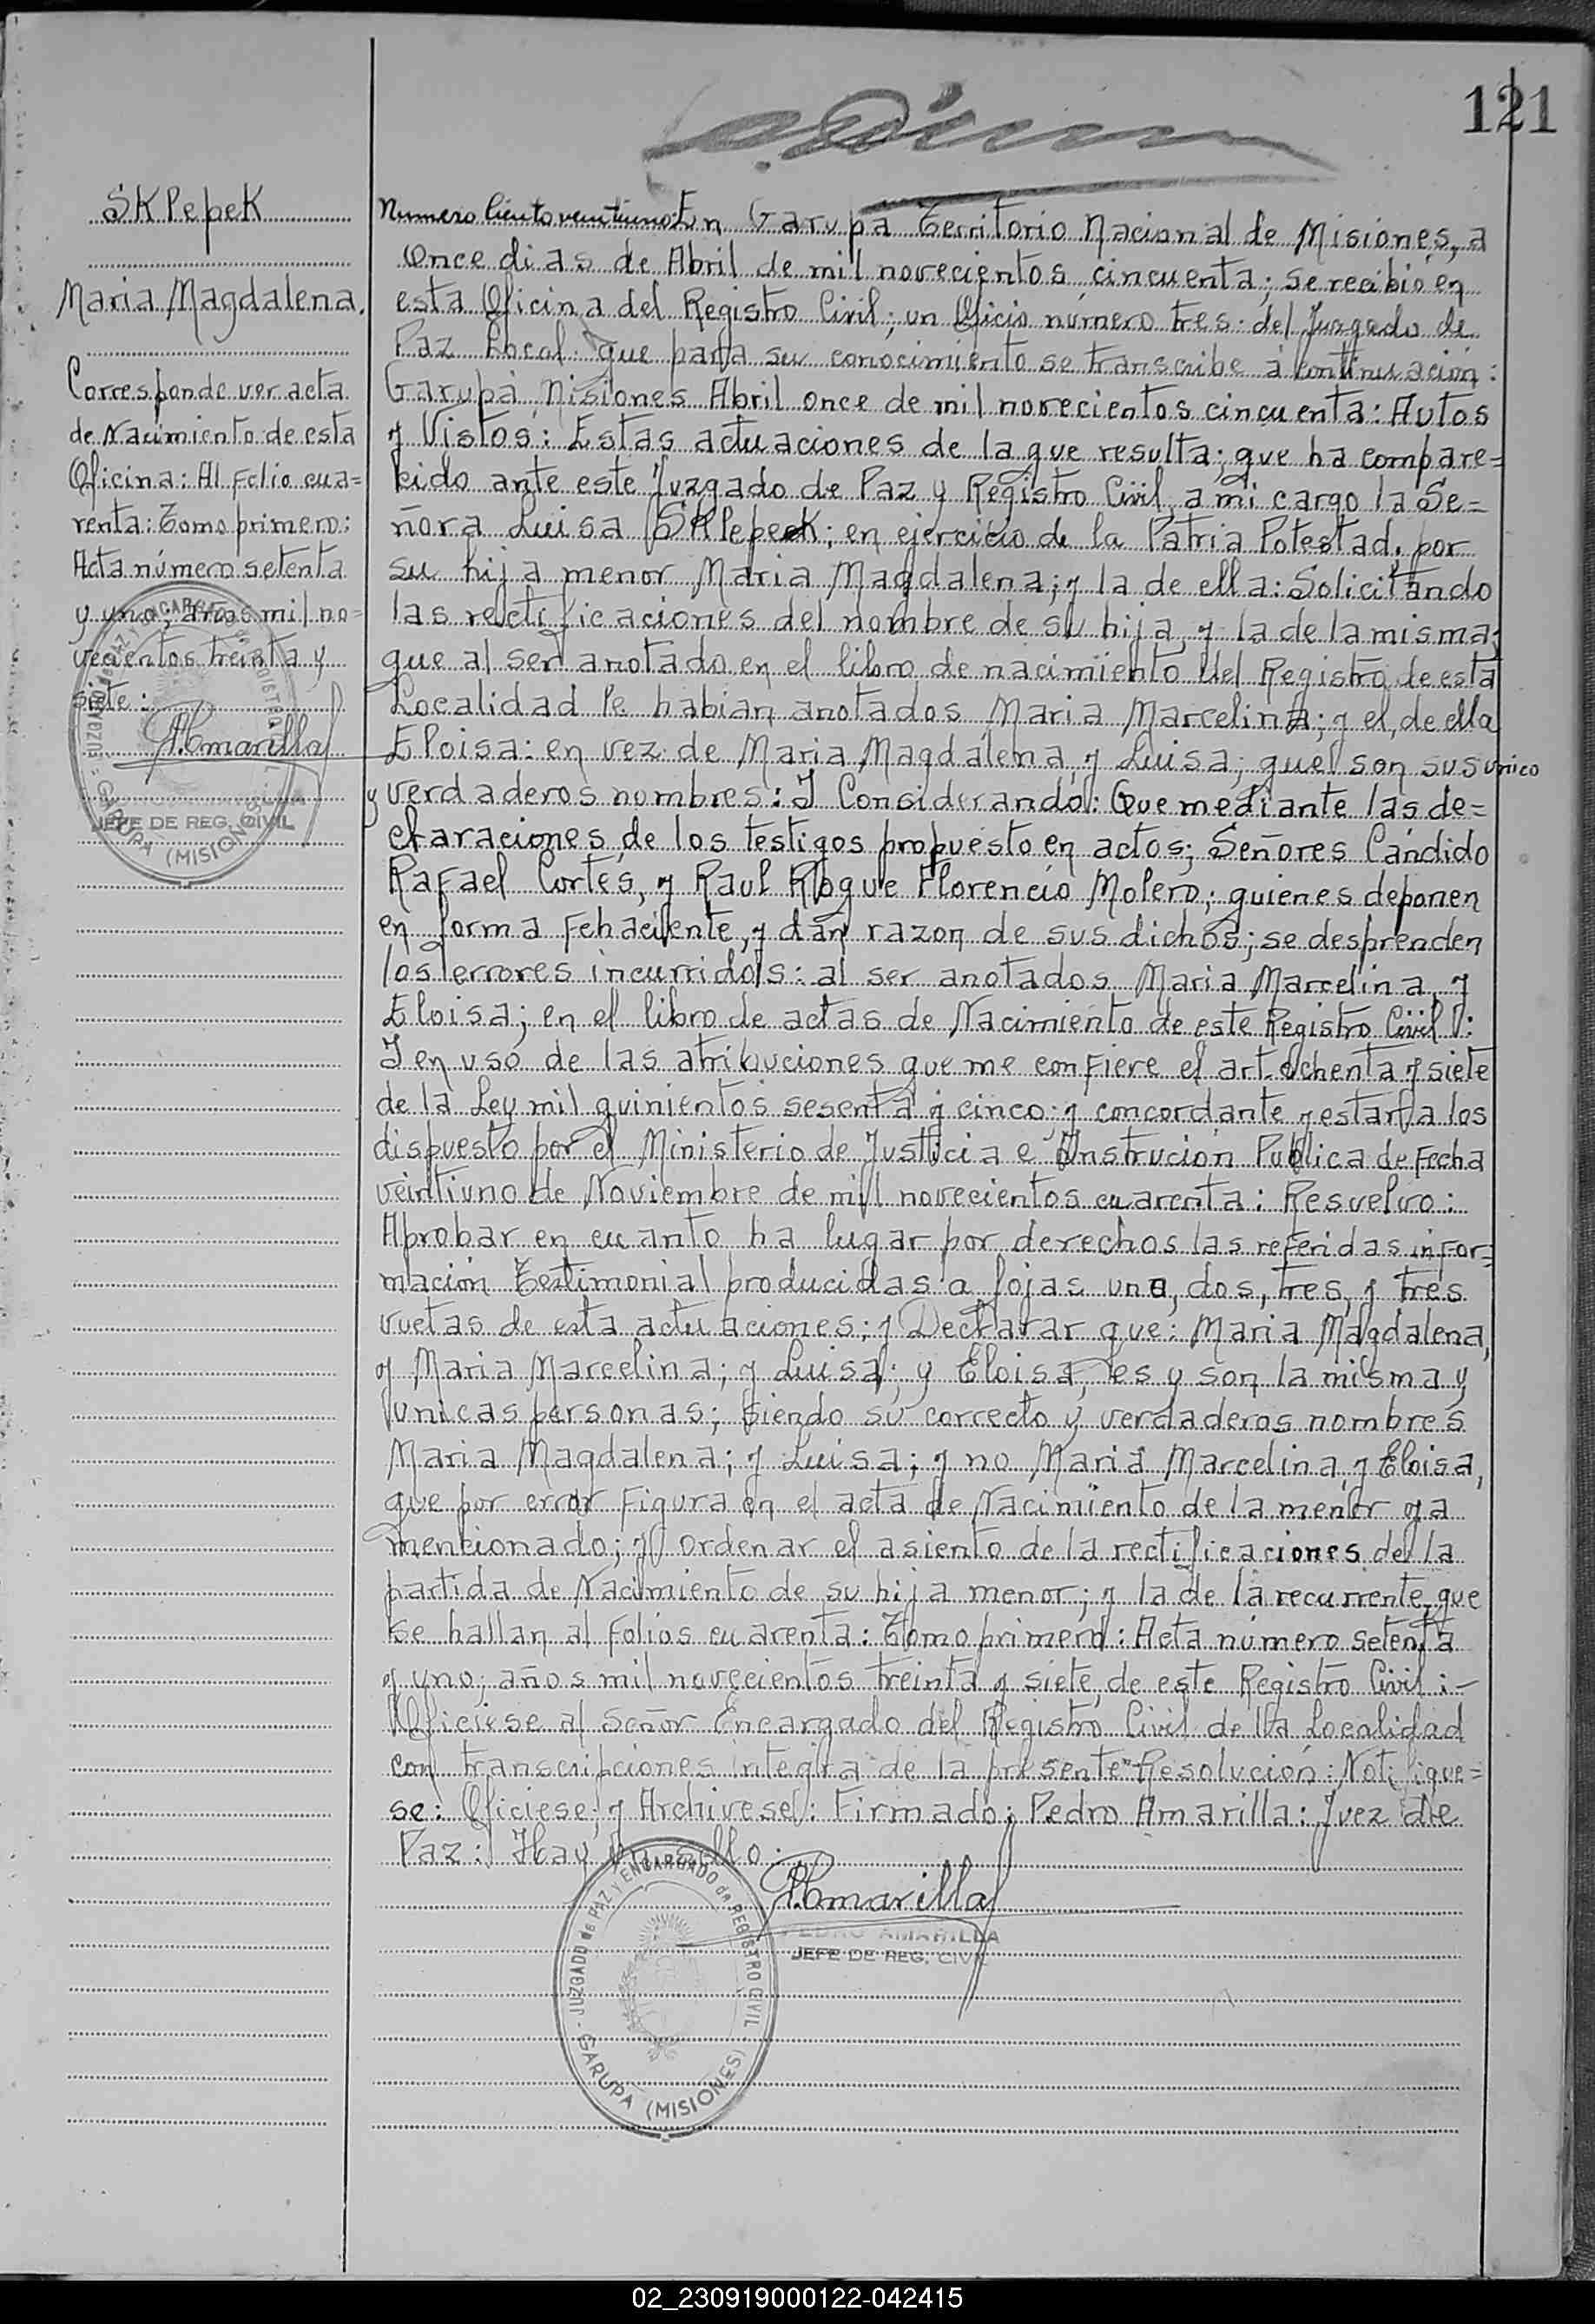 121
SKlepek
Maria Magdalena.
Corresponde ver acta
de Nacimiento de esta
Oficina: Al Folio cua=
renta: Tomo primero:
Acta número setenta
y uno; años mil no=
vecientos treinta y
siete:
P. Amarilla
JEFE DE REG. CIVIL
GARUPA (MISIONES)
Numero Ciento veintiuno: En Garupa Territorio Nacional de Misiones, a
Once dias de Abril de mil novecientos cincuenta; se recibió en
esta Oficina del Registro Civil; un Oficio número tres del Juzgado de
Paz Local que para su conocimiento se transcribe a continuación:
Garupá Misiones Abril once de mil novecientos cincuenta: Autos
y Vistos: Estas actuaciones de la que resulta; que ha compare=
cido ante este Juzgado de Paz y Registro Civil a mi cargo la Se=
ñora Luisa SKlepek; en ejercicio de la Patria Potestad, por
su hija menor Maria Magdalena; y la de ella: Solicitando
las rectificaciones del nombre de su hija, y la de la misma;
que al ser anotado en el libro de nacimiento del Registro de esta
Localidad le habian anotados Maria Marcelina; y el de ella
Eloisa: en vez de Maria Magdalena, y Luisa; que son sus unico
y verdaderos nombres: I Considerando: Que mediante las de=
claraciones de los testigos propuesto en actos; Señores Cándido
Rafael Cortés, y Raul Roque Florencio Molero; quienes deponen
en forma Fehaciente, y dán razon de sus dichos; se desprenden
los errores incurridos: al ser anotados Maria Marcelina y
Eloisa; en el libro de actas de Nacimiento de este Registro Civil:
I en uso de las atribuciones que me confiere el art. ochenta y siete
de la Ley mil quinientos sesenta y cinco; y concordante y estar a los
dispuesto por el Ministerio de Justicia e Instrucion Publica de Fecha
veintiuno de Noviembre de mil novecientos cuarenta: Resuelvo:
Aprobar en cuanto ha lugar por derechos las referidas infor=
mación Testimonial producidas a fojas una, dos, tres, y tres
vueltas de esta actuaciones; y Declarar que: Maria Magdalena,
y Maria Marcelina; y Luisa; y Eloisa, es y son la misma y
unicas personas; siendo su correcto y verdaderos nombres
Maria Magdalena; y Luisa; y no Maria Marcelina y Eloisa,
que por error Figura en el acta de Nacimiento de la menor ya
mencionado; y ordenar el asiento de la rectificaciones de la
partida de Nacimiento de su hija menor; y la de la recurrente, que
se hallan al Folios cuarenta: Tomo primero: Acta número setenta
y uno; años mil novecientos treinta y siete, de este Registro Civil:-
Oficiese al Señor Encargado del Registro Civil de la Localidad
con transcripciones integra de la presente Resolución: Notifique=
se: Oficiese; y Archivese: Firmado; Pedro Amarilla: Juez de
Paz: Hay un sello:
P. Amarilla
PEDRO AMARILLA
JEFE DE REG. CIVIL
JUZGADO de PAZ Y ENCARGADO de REGISTRO CIVIL
GARUPA (MISIONES)
02_230919000122-042415